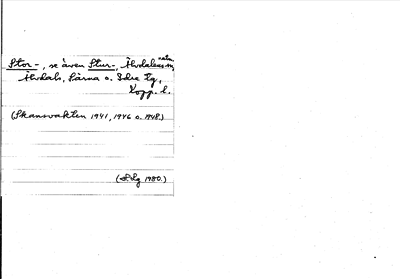 Stor-, se även Stur-, Älvdalens
Älvdals, Särna o. Idre tg,
Kopp. l.
(Skansvakten 1941, 1946 o. 1948.)
1980.)